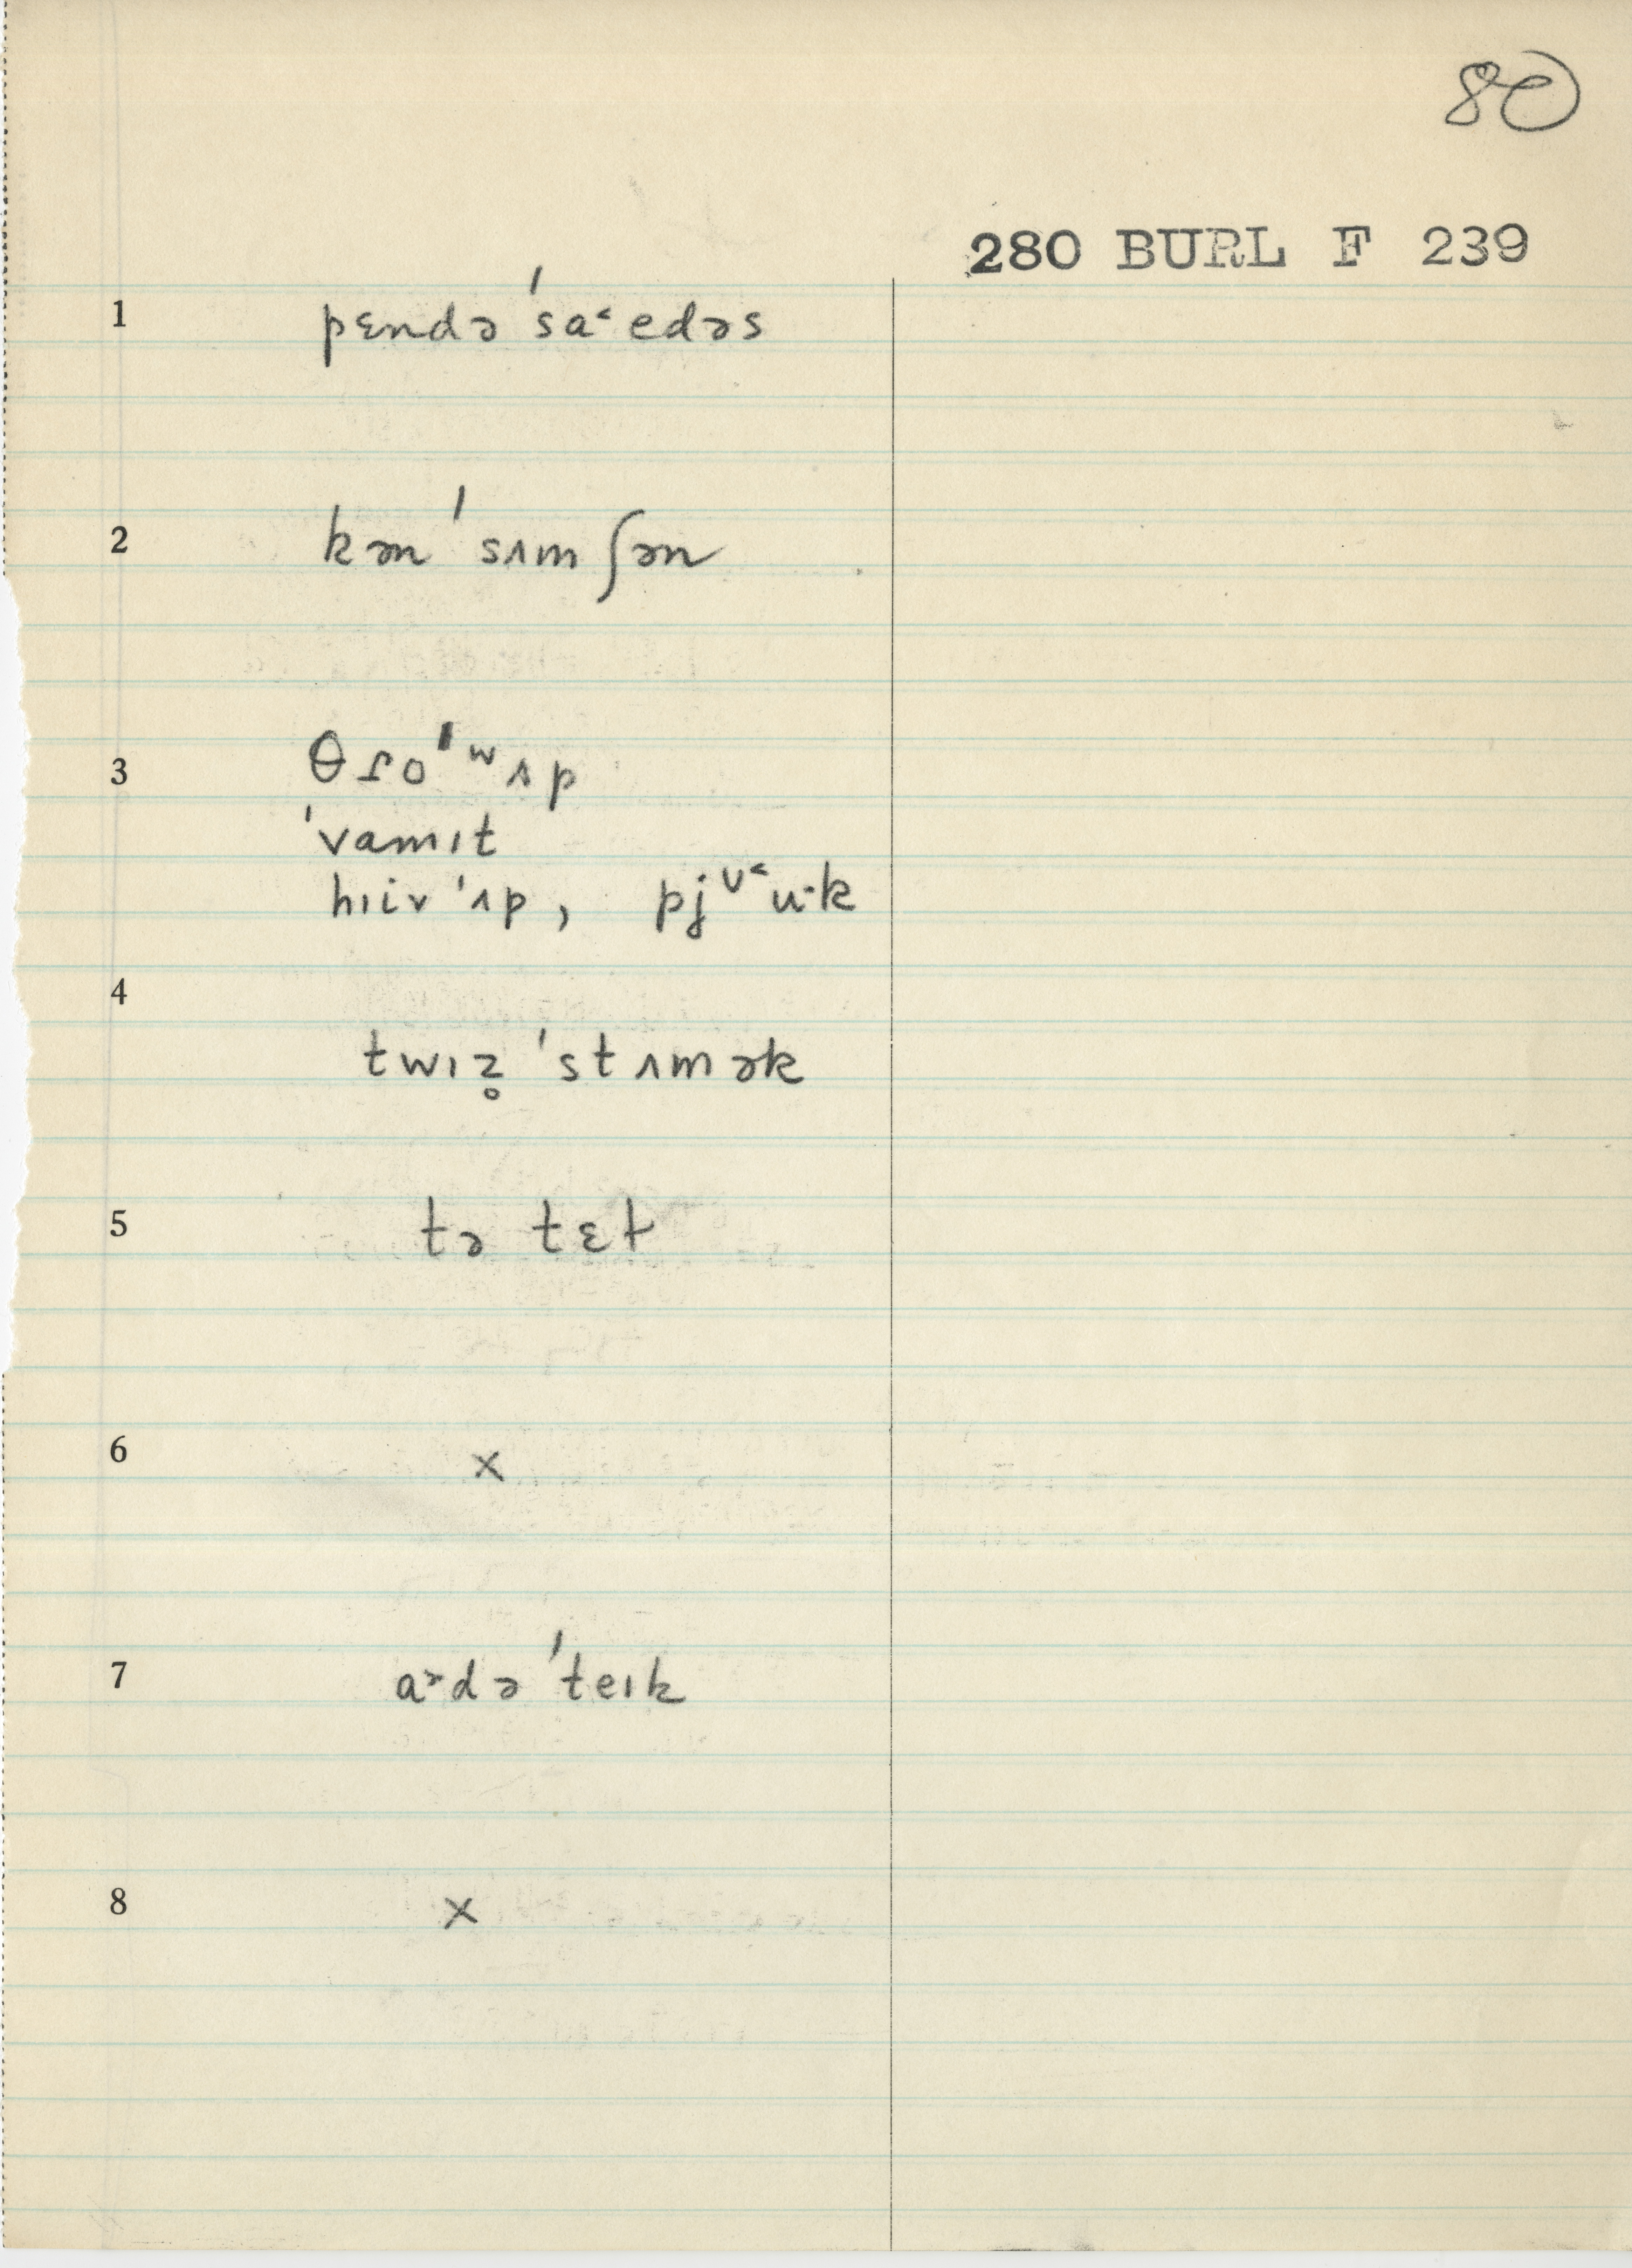 80
280 BURL F 239
1 pɛndə ˈsa˂edəs
2 kən ˈsʌmʃən
3 θɾoˈʷʌp
ˈvamɪt
hɪiv ˈʌp, pjᶷ˂u·k
4 twɪz̥ ˈstʌmək
5 tə tɛt
6 x
7 a˃də ˈteɪk
8 x